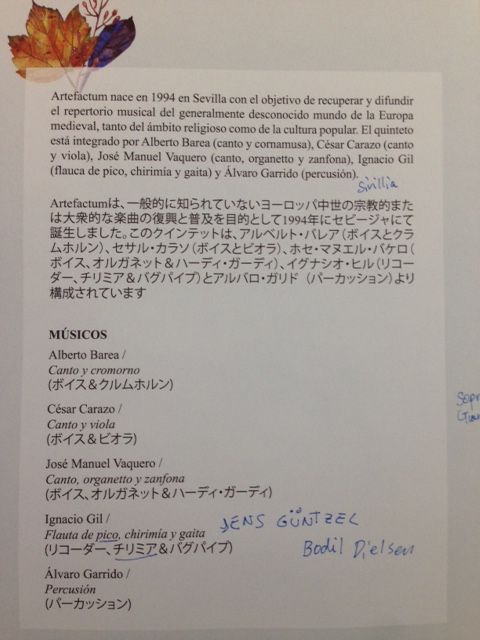 Artefactum nace en 1994 en Sevilla con el objetivo de recuperar y difundir
el repertorio musical del generalmente desconocido mundo de la Europa
medieval, tanto del ámbito religioso como de la cultura popular. El quinteto
está integrado por Alberto Barea (canto y cornamusa), César Carazo (canto
y viola), José Manuel Vaquero (canto, organetto y zanfona), Ignacio Gil
(flauca de pico, chirimía y gaita) y Álvaro Garrido (percusión).
Sivillia
Artefactumは、一般的に知られていないヨーロッパ中世の宗教的または
大衆的な楽曲の復興と普及を目的として1994年にセビージャにて
誕生しました。このクインテットは、アルベルト・バレア(ボイスとクラ
ムホルン)、セサル・カラソ(ボイスとビオラ)、ホセ・マヌエル・バケロ(
ボイス、オルガネット&ハーディ・ガーディ)、イグナシオ・ヒル(リコー
ダー、チリミア&バグパイプ)とアルバロ・ガリド (パーカッション)より
構成されています
MÚSICOS
Alberto Barea /
Canto y cromorno
(ボイス&クルムホルン)
César Carazo /
Canto y viola
(ボイス&ビオラ)
José Manuel Vaquero /
Canto, organetto y zanfona
(ボイス、オルガネット&ハーディ・ガーディ)
Ignacio Gil / JENS GÜNTZEL
Flauta de pico, chirimía y gaita
(リコーダー、チリミア&バグパイプ) Bodil Dielsen
Álvaro Garrido /
Percusión
(パーカッション)